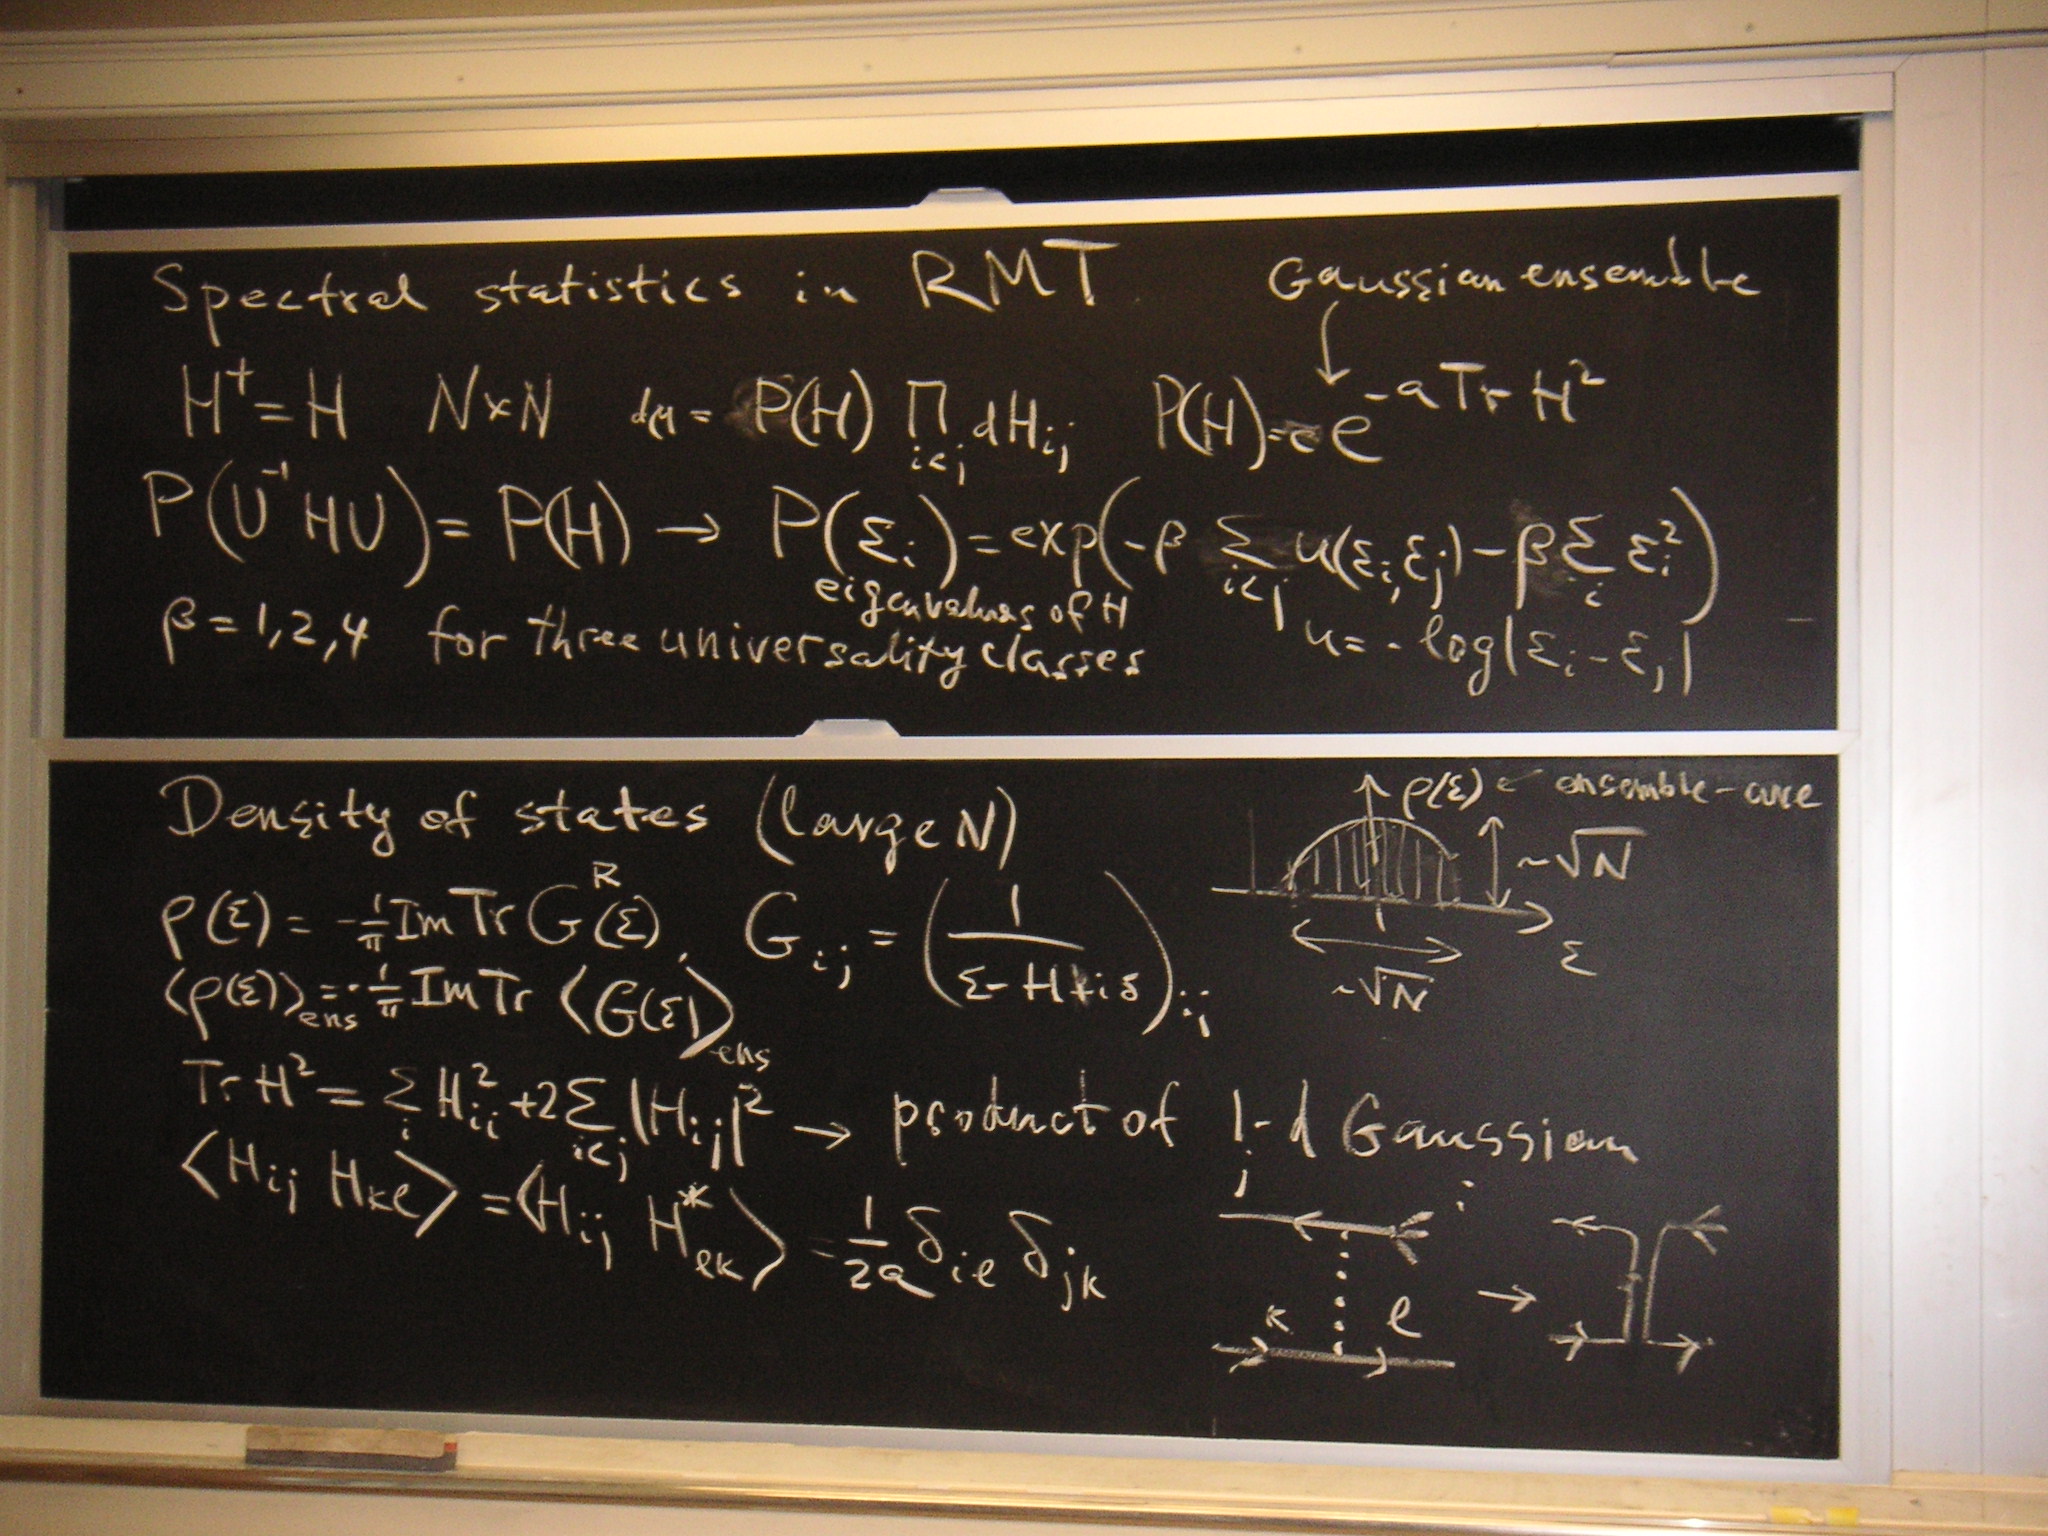 Spectral statistics in RMT Gaussian ensemble
H† = H N×N dμ = P(H) ∏_{i<j} dH_{ij} P(H) = c e^{-a Tr H²}
P(U⁻¹HU) = P(H) → P(ε_i) = exp(-β Σ_{i<j} u(ε_i, ε_j) - β Σ_i ε_i²)
eigenvalues of H
β = 1, 2, 4 for three universality classes u = -log|ε_i - ε_j|
Density of states (large N)
ρ(ε) ← ensemble-ave
~√N
ε
~√N
ρ(ε) = -1/π Im Tr G^R(ε), G_{ij} = (1/(ε - H + iδ))_{ij}
⟨ρ(ε)⟩_{ens} = -1/π Im Tr ⟨G(ε)⟩_{ens}
Tr H² = Σ_i H_{ii}² + 2 Σ_{i<j} |H_{ij}|² → product of 1-d Gaussian
⟨H_{ij} H_{kl}⟩ = ⟨H_{ij} H*_{lk}⟩ = 1/2a δ_{il} δ_{jk}
j i
→
k l